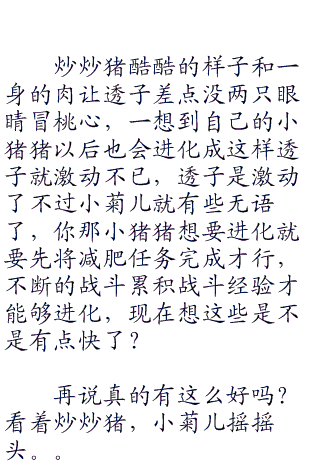 炒炒猪酷酷的样子和一
身的肉让透子差点没两只眼
睛冒桃心，一想到自己的小
猪猪以后也会进化成这样透
子就激动不已，透子是激动
了不过小菊儿就有些无语
了，你那小猪猪想要进化就
要先将减肥任务完成才行，
不断的战斗累积战斗经验才
能够进化，现在想这些是不
是有点快了？
再说真的有这么好吗？
看着炒炒猪，小菊儿摇摇
头。。